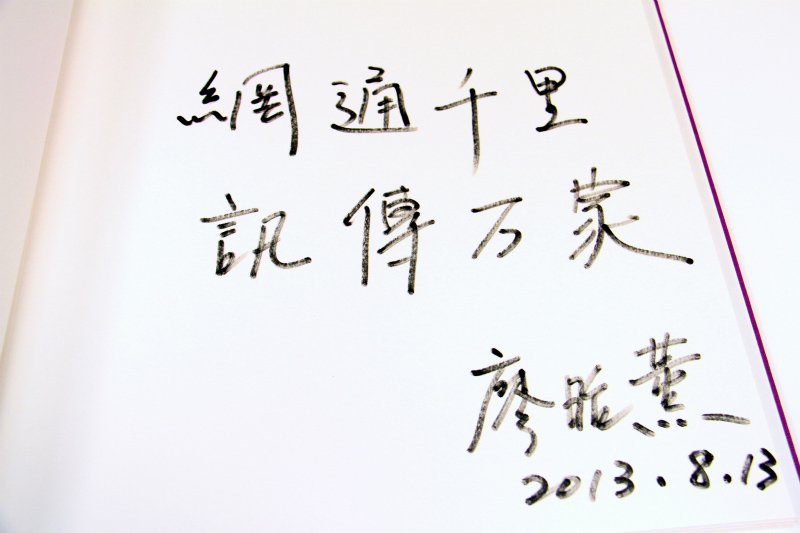 網通千里
訊傳万家
廖晚薰
2013.8.13